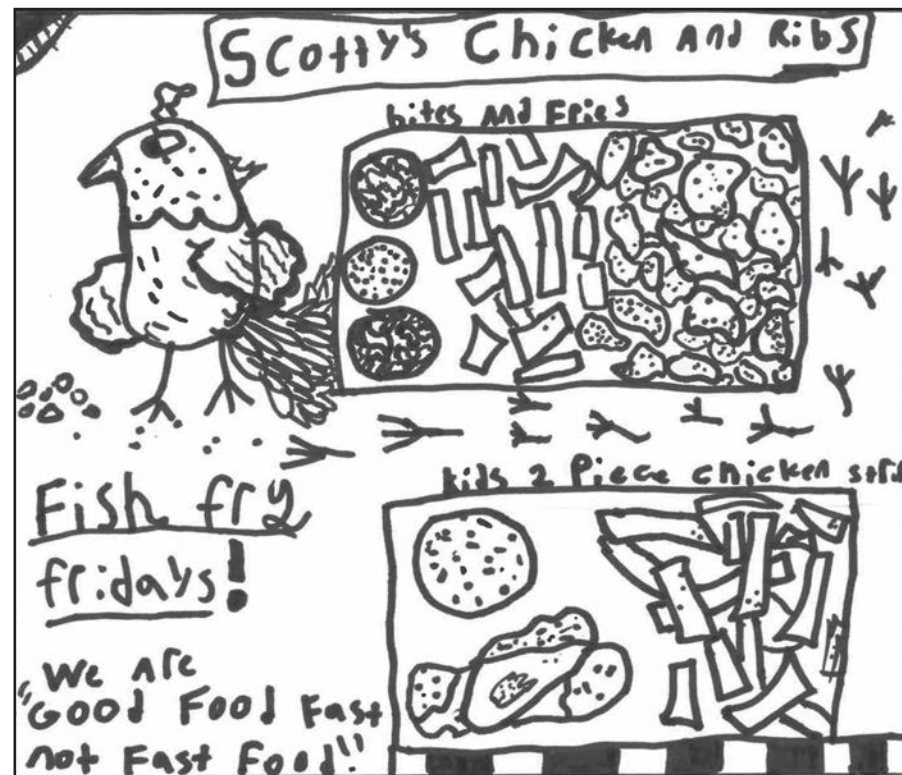 Scotty's Chicken and Ribs
bites and Fries
kids 2 Piece chicken
Fish fry
fridays!
"We Are
Good Food Fast
not Fast Food"